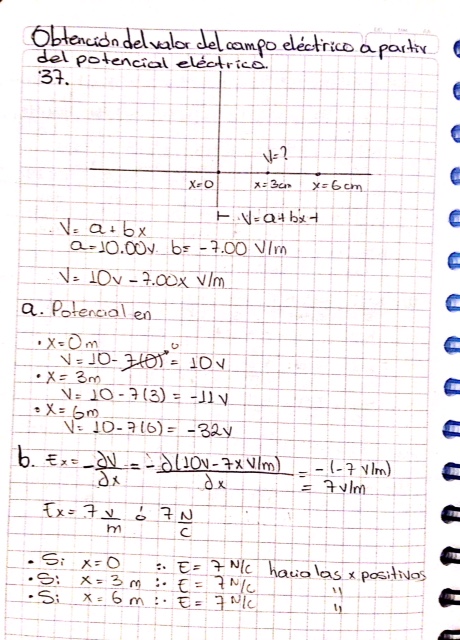 Obtención del valor del campo eléctrico a partir
del potencial eléctrico.
37.
V=?
x=0 x=3cm x=6cm
⊢ V=a+bx⊣
V= a+bx
a=10.00v b= -7.00 V/m
V= 10v -7.00x V/m
a. Potencial en
• x=0m
V= 10- 7(0) = 10v
0
• x= 3m
V= 10 - 7(3) = -11v
• x= 6m
V= 10-7(6) = -32v
b. Ex= -∂V/∂x = -∂(10v-7x V/m)/∂x = -(-7 V/m)
= 7 v/m
Ex= 7 V/m ó 7 N/C
• Si x=0 ∴ E= 7 N/C hacia las x positivas
• Si x= 3 m ∴ E= 7 N/C "
• Si x= 6 m ∴ E= 7 N/C "